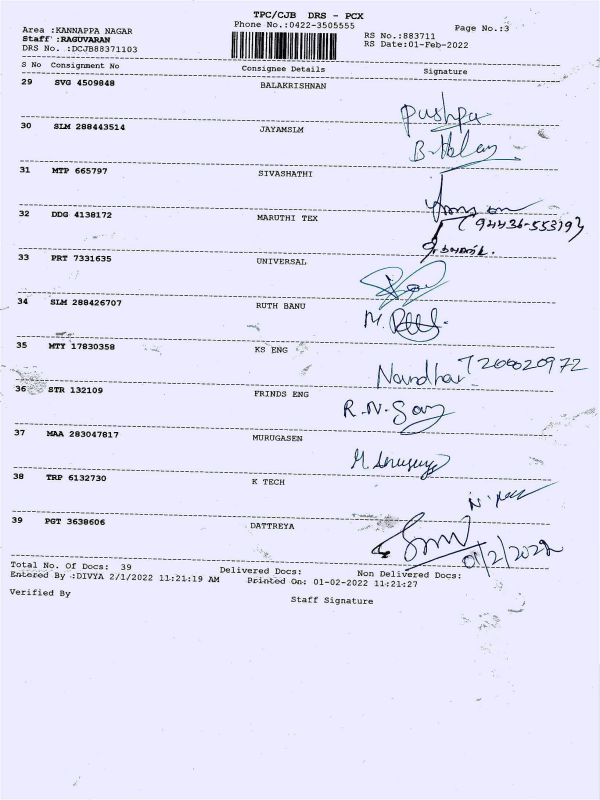 TPC/CJB DRS - PCX
Phone No.:0422-3505555
Page No.:3
Area :KANNAPPA NAGAR
Staff :RAGUVARAN
DRS No. :DCJB88371103
RS No.:883711
RS Date:01-Feb-2022
S No Consignment No Consignee Details Signature
29 SVG 4509848 BALAKRISHNAN
Pushpa
30 SLM 288443514 JAYAMSLM
31 MTP 665797 SIVASHATHI
32 DDG 4138172 MARUTHI TEX
(94436-55379)
33 PRT 7331635 UNIVERSAL
34 SLM 288426707 RUTH BANU
M.
35 MTY 17830358 KS ENG
Nandhar 7200020972
36 STR 132109 FRINDS ENG
R.N.
37 MAA 283047817 MURUGASEN
38 TRP 6132730 K TECH
39 PGT 3638606 DATTREYA
01/2/2022
Total No. Of Docs: 39 Delivered Docs: Non Delivered Docs:
Entered By :DIVYA 2/1/2022 11:21:19 AM Printed On: 01-02-2022 11:21:27
Verified By Staff Signature